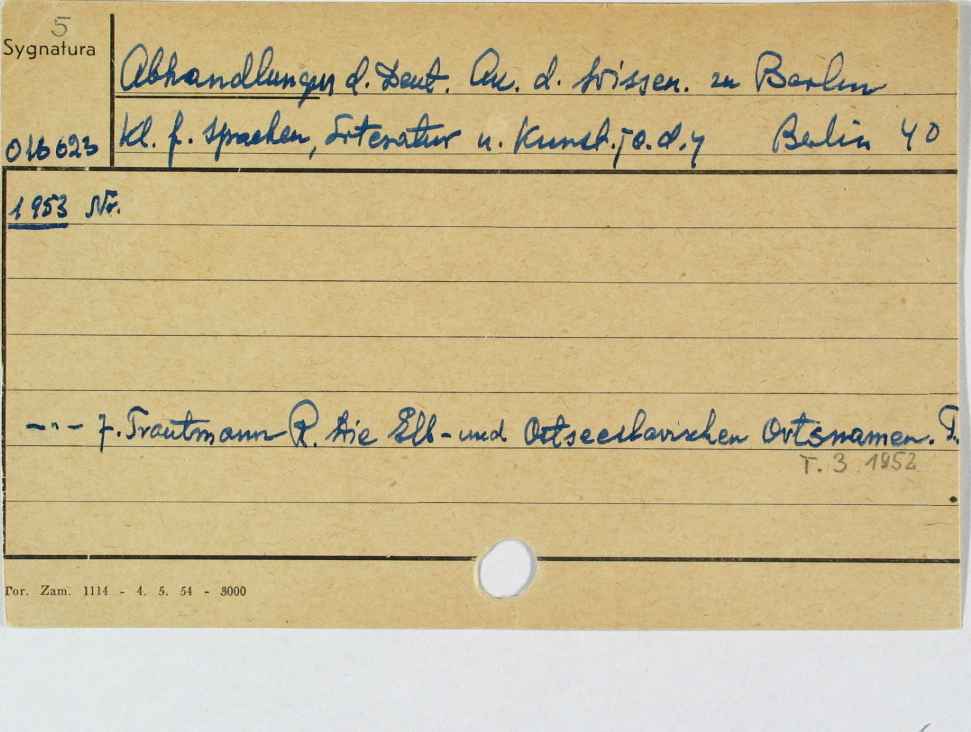 5
Sygnatura
Abhandlungen d. Deut. Ak. d. Wissen. zu Berlin
016023 Kl. f. Sprachen, Literatur u. Kunst. jo.d.y Berlin 40
1953 Nr.
-"- 7. Trautmann R. Die Elb- und Ostseeslavischen Ortsnamen. T.
T. 3 1952
Tor. Zam. 1114 - 4. 5. 54 - 3000